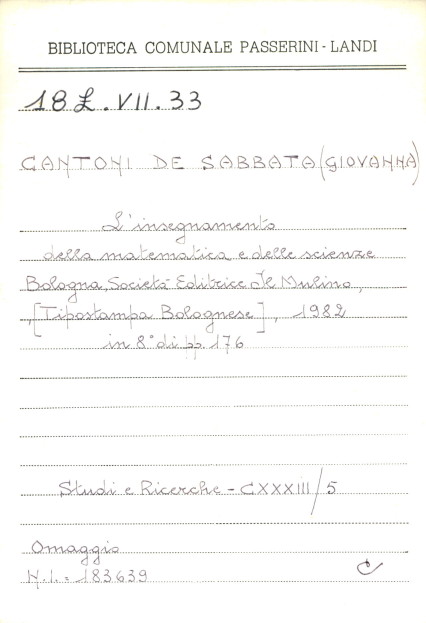 BIBLIOTECA COMUNALE PASSERINI - LANDI
18 L. VII. 33
CANTONI DE SABBATA (GIOVANNA)
L'insegnamento
della matematica e delle scienze
Bologna, Società Editrice Il Mulino,
[Tipostampa Bolognese], 1982
in 8° di pp. 176
Studi e Ricerche - CXXXIII/5
Omaggio
N.I.: 183639